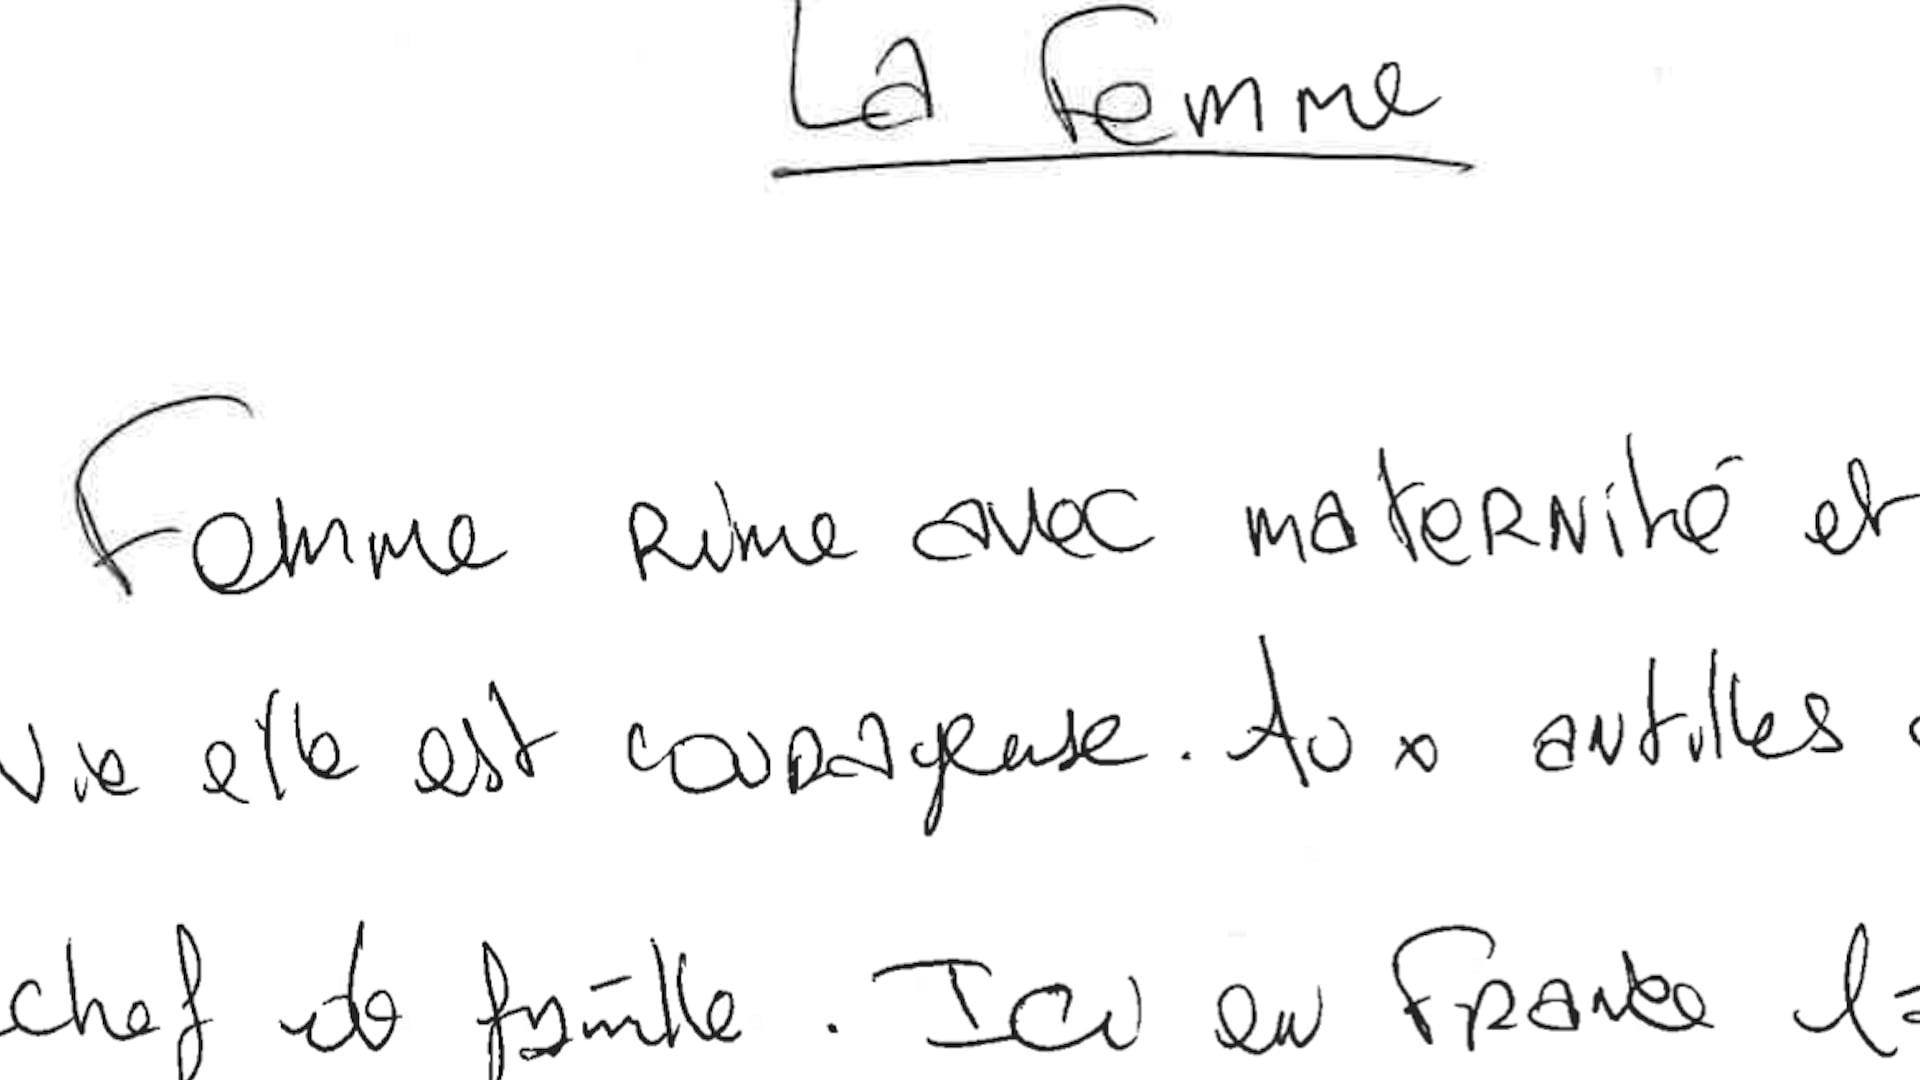 La Femme
Femme Rime avec materNité et
Vie elle est courageuse. Aux antilles
chef de famille. Ici en France la